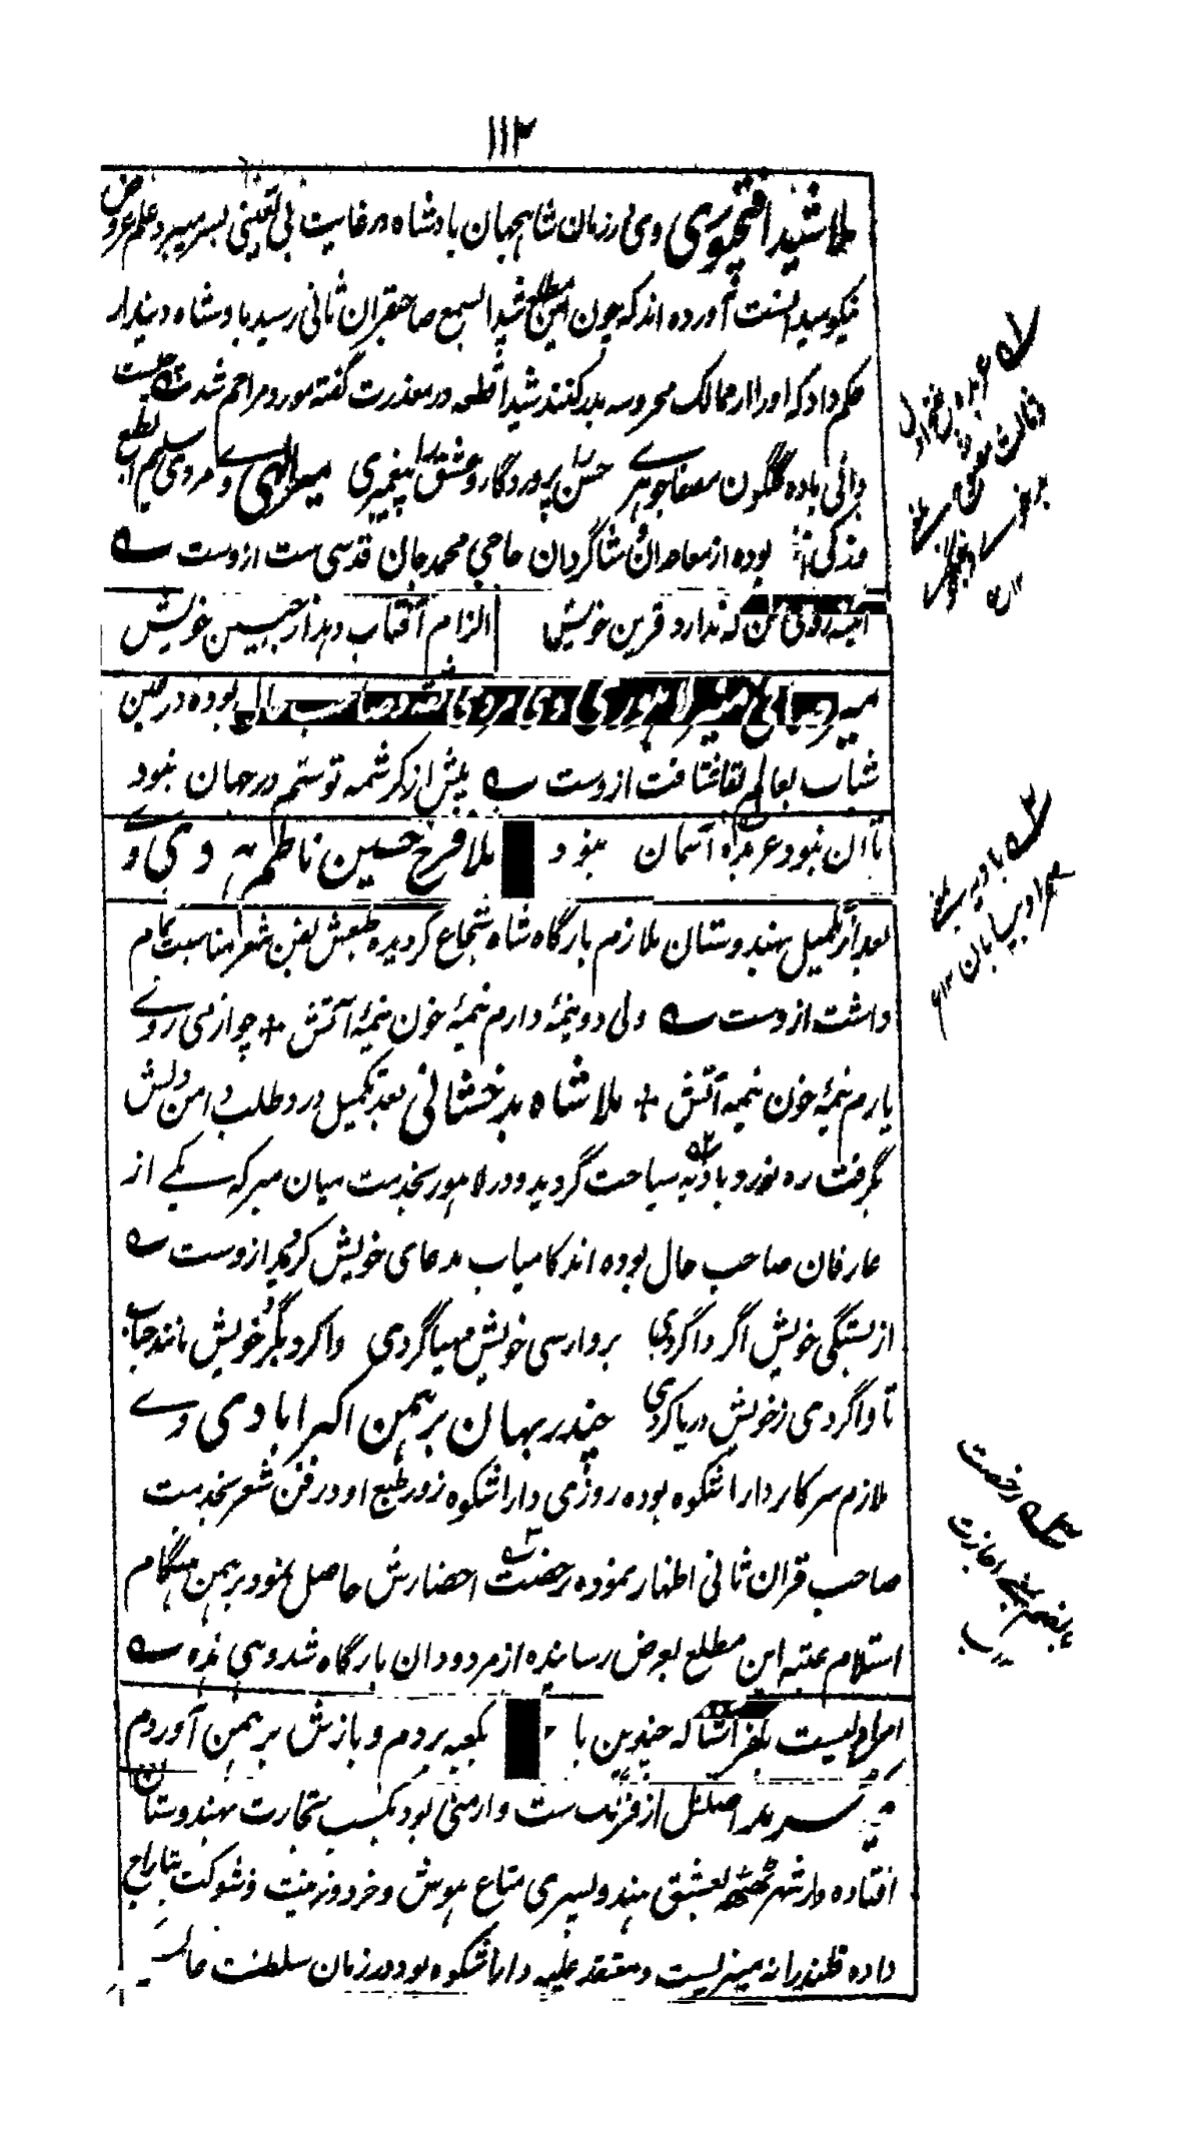 ۱۱۲
ملا شیدا فتحپوری وی در زمان شاهجهان بادشاه در غایت بی تعینی بسر میبرد علم عروض
نیکو میدانست آورده اند که چون این مطلع شیدا بسمع صاحبقران ثانی رسید بادشاه دیندار
حکم داد که او را از ممالک محروسه بدر کنند شیدا قطعه در معذرت گفته مورد مراحم شد چیست
دانی باده گلگون مصفا جوهرے حسن را پروردگار و عشق را پیغمبری میر الهی وے مردی سلیم الطبع
و ذکی بوده از معاصران شاگردان حاجی محمد جان قدسی ست ازوست
آئینه روئی من که ندارد قرین خویش الزام آفتاب دهد از جبین خویش
میر لاهوری وی مردی ثقه و صاحب حال بوده در عین
شباب بعالم بقا شتافت ازوست بیش از کرشمه تو ستم در جهان نبود
تا آن نبود عربده آسمان نبود ملا فرخ حسین ناظم هروی وے
بعد از تکمیل بهندوستان ملازم بارگاه شاه شجاع گردیده طبعش بفن شعر مناسبت تمام
داشت ازوست ولی دو نیمهٔ دارم نیمهٔ خون نیمهٔ آتش + چو از می روے
یارم نیمهٔ خون نیمه آتش + ملا شاه بدخشانی بعد تکمیل درد طلب دامن دلش
بگرفت ره نورد بادیه سیاحت گردید و در لاهور بخدمت میان میر که یکے از
عارفان صاحب حال بوده اند کامیاب مدعای خویش گردید ازوست
از بستگی خویش اگر واگردی بر وارسی خویش مهیا گردی واکرد بگر خویش مانند حباب
تا واگردی ز خویش دریا گردی چندر بهان برهمن اکبرابادی وے
ملازم سرکار دارا شکوه بوده روزی دارا شکوه زور طبع او در فن شعر بخدمت
صاحب قران ثانی اظهار نموده رخصت احضارش حاصل نمود برهمن هنگام
استلام عتبه این مطلع بعرض رسانیده از مردودان بارگاه شد وهی هذه
مرا دلیست بکفر آشنا که چندین بار بکعبه بردم و بازش برهمن آوردم
سرمد اصلش از فرنگ ست و ارمنی بود بکسب تجارت بهندوستان
افتاده در شهر ٹھٹھه بعشق هندو پسری متاع هوش و خرد و زینت و شوکت بتاراج
داده قلندرانه میزیست و معتقد علیه دارا شکوه بود در زمان سلطنت
بادیه
صحرا و بیابان ۱۲
رخصت
اجازت